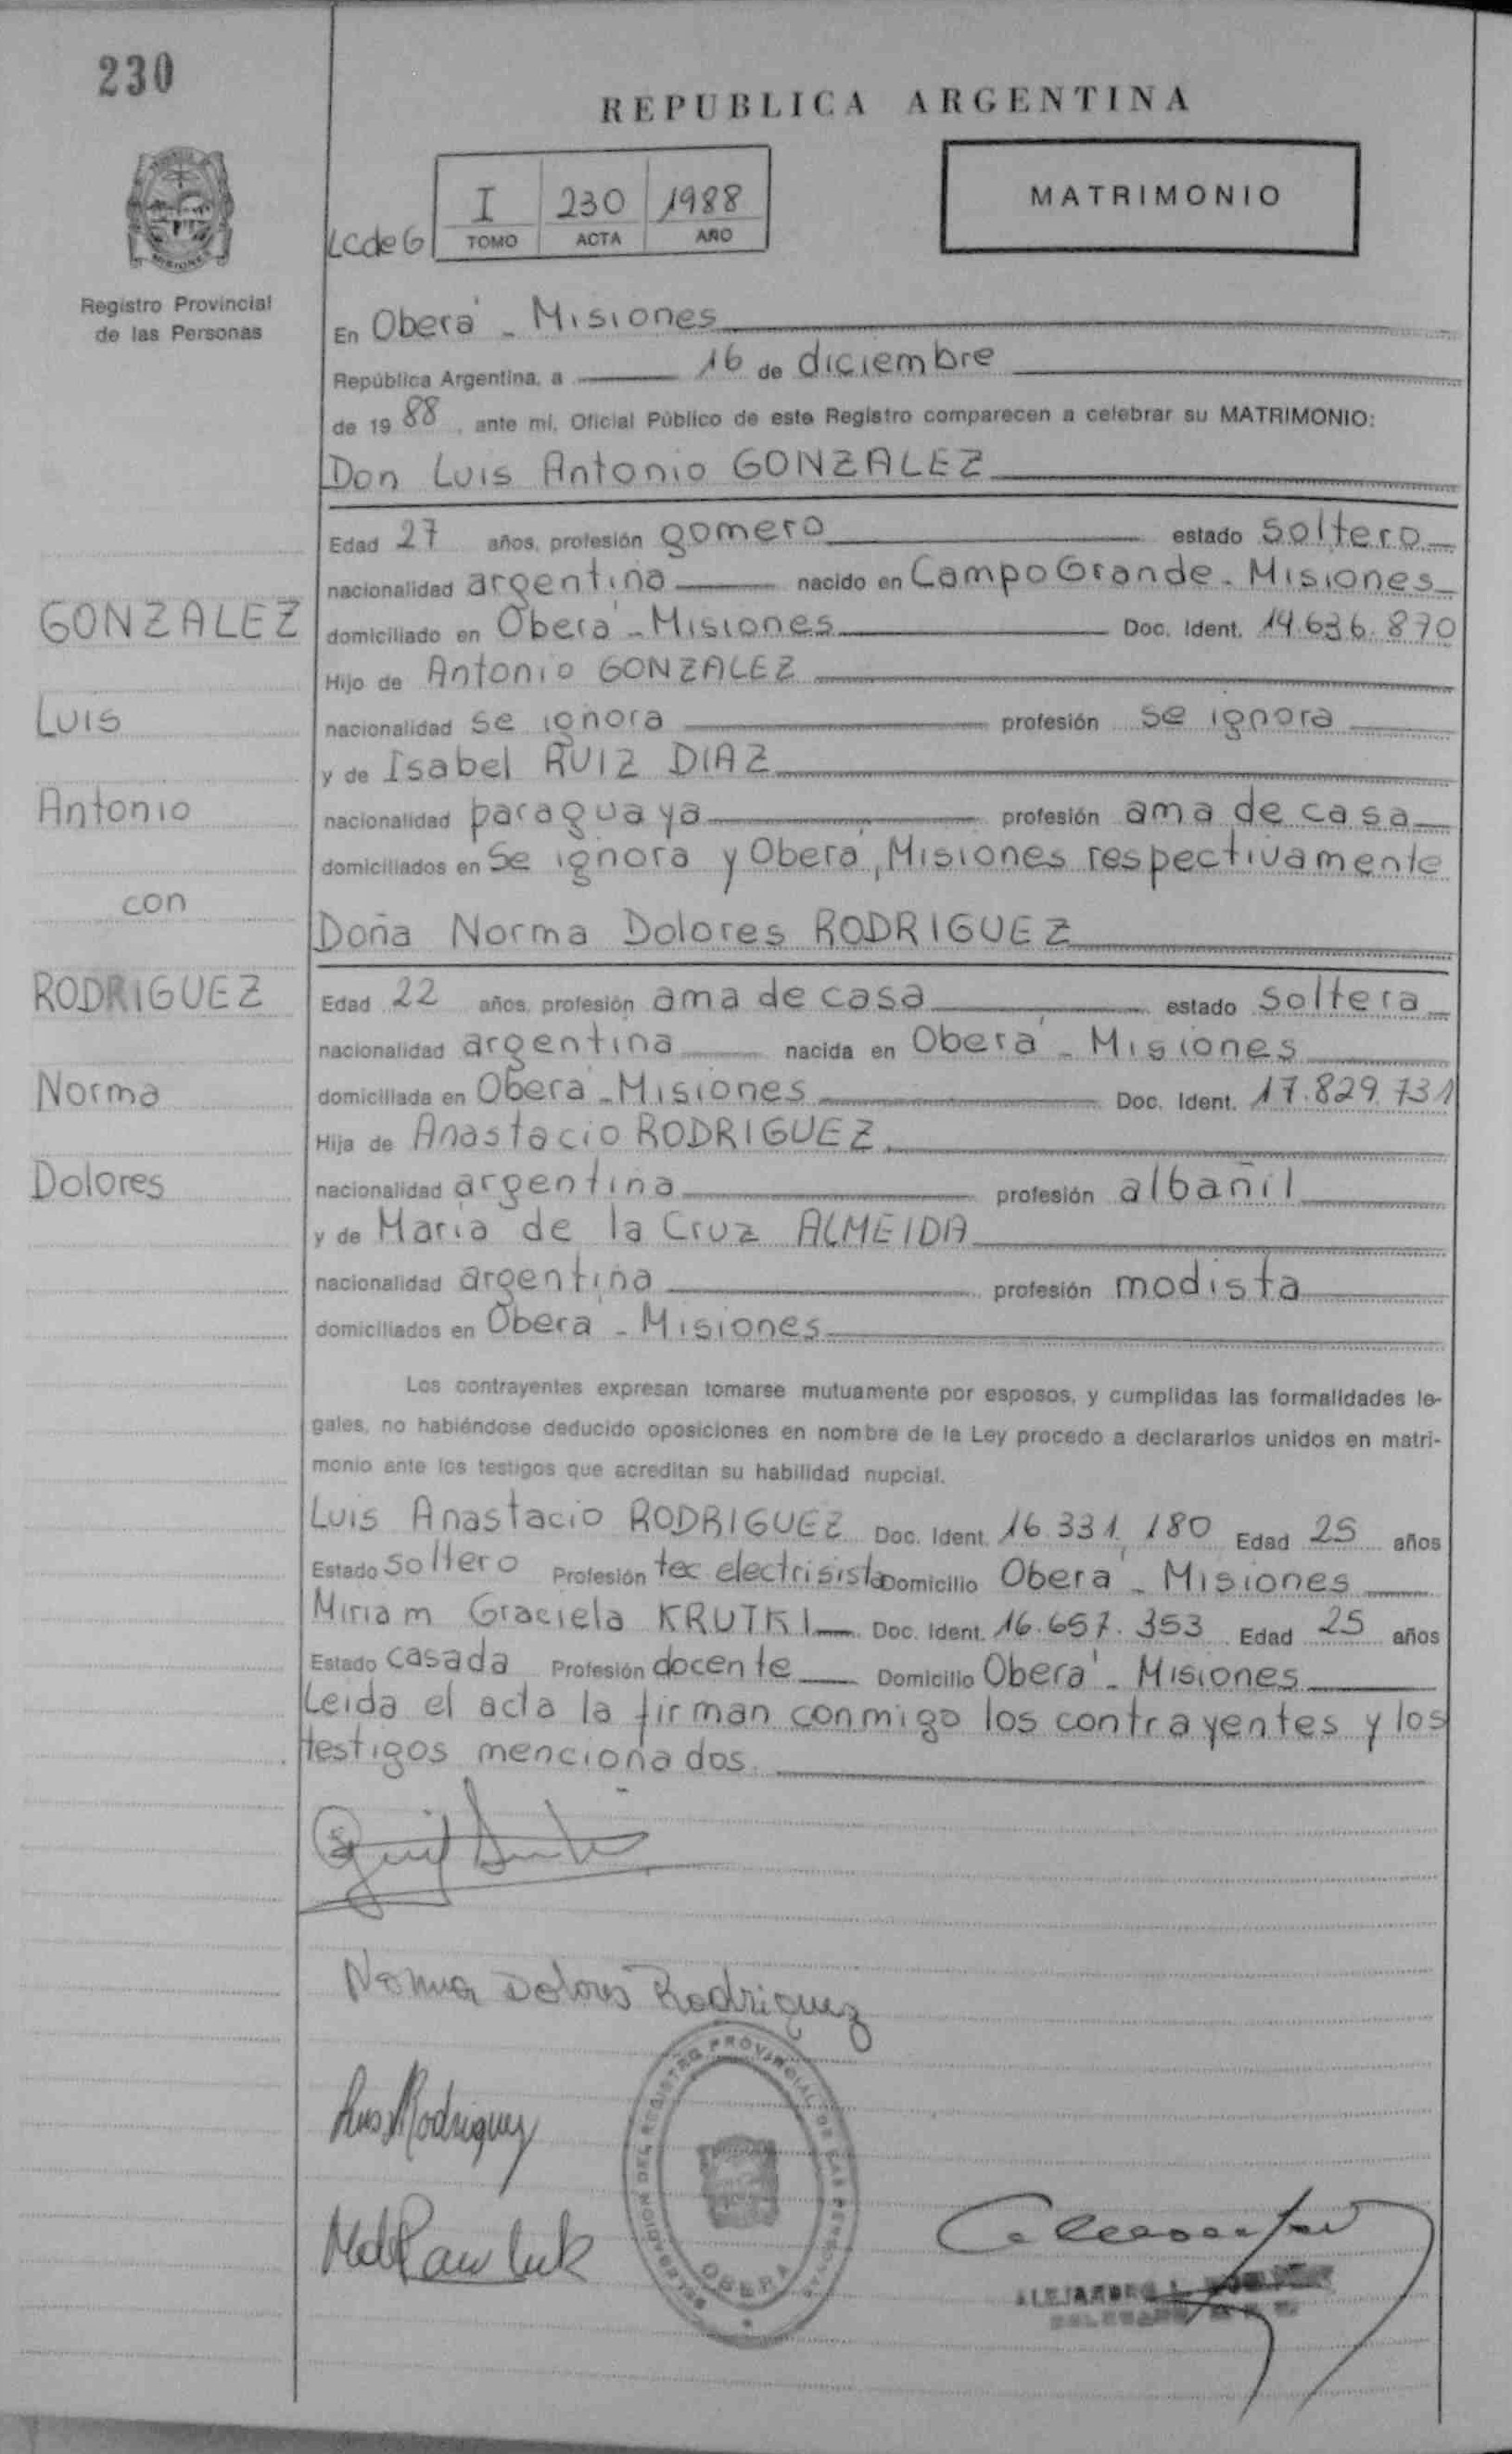 230
REPUBLICA ARGENTINA
MATRIMONIO
I 230 1988
LCde6 TOMO ACTA AÑO
MISIONES
Registro Provincial
de las Personas
En Oberá - Misiones
República Argentina, a 16 de diciembre
de 19 88, ante mí, Oficial Público de este Registro comparecen a celebrar su MATRIMONIO:
Don Luis Antonio GONZALEZ
Edad 27 años, profesión gomero estado soltero
nacionalidad argentina nacido en Campo Grande - Misiones
GONZALEZ
domiciliado en Oberá - Misiones Doc. Ident. 14.636.870
Hijo de Antonio GONZALEZ
Luis
nacionalidad se ignora profesión se ignora
y de Isabel RUIZ DIAZ
Antonio
nacionalidad paraguaya profesión ama de casa
domiciliados en Se ignora y Oberá, Misiones respectivamente
con
Doña Norma Dolores RODRIGUEZ
RODRIGUEZ
Edad 22 años, profesión ama de casa estado soltera
nacionalidad argentina nacida en Oberá - Misiones
Norma
domiciliada en Oberá - Misiones Doc. Ident. 17.829.731
Hija de Anastacio RODRIGUEZ
Dolores
nacionalidad argentina profesión albañil
y de María de la Cruz ALMEIDA
nacionalidad argentina profesión modista
domiciliados en Oberá - Misiones
Los contrayentes expresan tomarse mutuamente por esposos, y cumplidas las formalidades le-
gales, no habiéndose deducido oposiciones en nombre de la Ley procedo a declararlos unidos en matri-
monio ante los testigos que acreditan su habilidad nupcial.
Luis Anastacio RODRIGUEZ Doc. Ident. 16.331.180 Edad 25 años
Estado soltero Profesión tec electrisista Domicilio Oberá - Misiones
Miriam Graciela KRUTKI Doc. Ident. 16.657.353 Edad 25 años
Estado casada Profesión docente Domicilio Oberá - Misiones
Leida el acta la firman conmigo los contrayentes y los
testigos mencionados.
Norma Dolores Rodriguez
Luis Rodriguez
DELEGACION DEL REGISTRO PROVINCIAL DE LAS PERSONAS
OBERA
ALEJANDRO